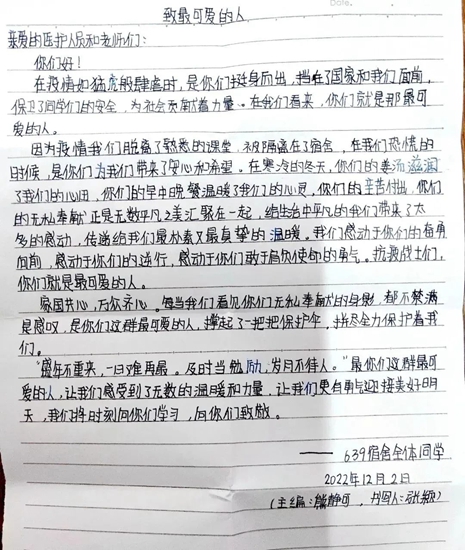 致最可爱的人
Date.
亲爱的医护人员和老师们：
你们好！
在疫情如猛虎般肆虐时，是你们挺身而出，挡在了国家和我们面前，
保卫了同学们的安全，为社会贡献着力量。在我们看来，你们就是那最可
爱的人。
因为疫情我们脱离了熟悉的课堂，被隔离在宿舍，在我们恐慌的
时候，是你们为我们带来了安心和希望。在寒冷的冬天，你们的姜汤滋润
了我们的心田，你们的早中晚餐温暖了我们的心灵，你们的辛苦付出，你们
的无私奉献正是无数平凡之美汇聚在一起，给生活中平凡的我们带来了太
多的感动，传递给我们最朴素又最真挚的温暖。我们感动于你们的奋勇
向前，感动于你们的逆行，感动于你们敢于肩负使命的勇气。抗疫战士们，
你们就是最可爱的人。
家国共心，万众齐心。每当我们看见你们无私奉献的身影，都不禁满
是感叹，是你们这群最可爱的人，撑起了一把把保护伞，拼尽全力保护着我
们。
“盛年不重来，一日难再晨。及时当勉励，岁月不待人。”最你们这群最可
爱的人，让我们感受到了无数的温暖和力量，让我们更有勇气迎接美好明
天，我们将时刻向你们学习，向你们致敬。
——639宿舍全体同学
2022年12月2日
（主编：熊静可，书写人：张颖）